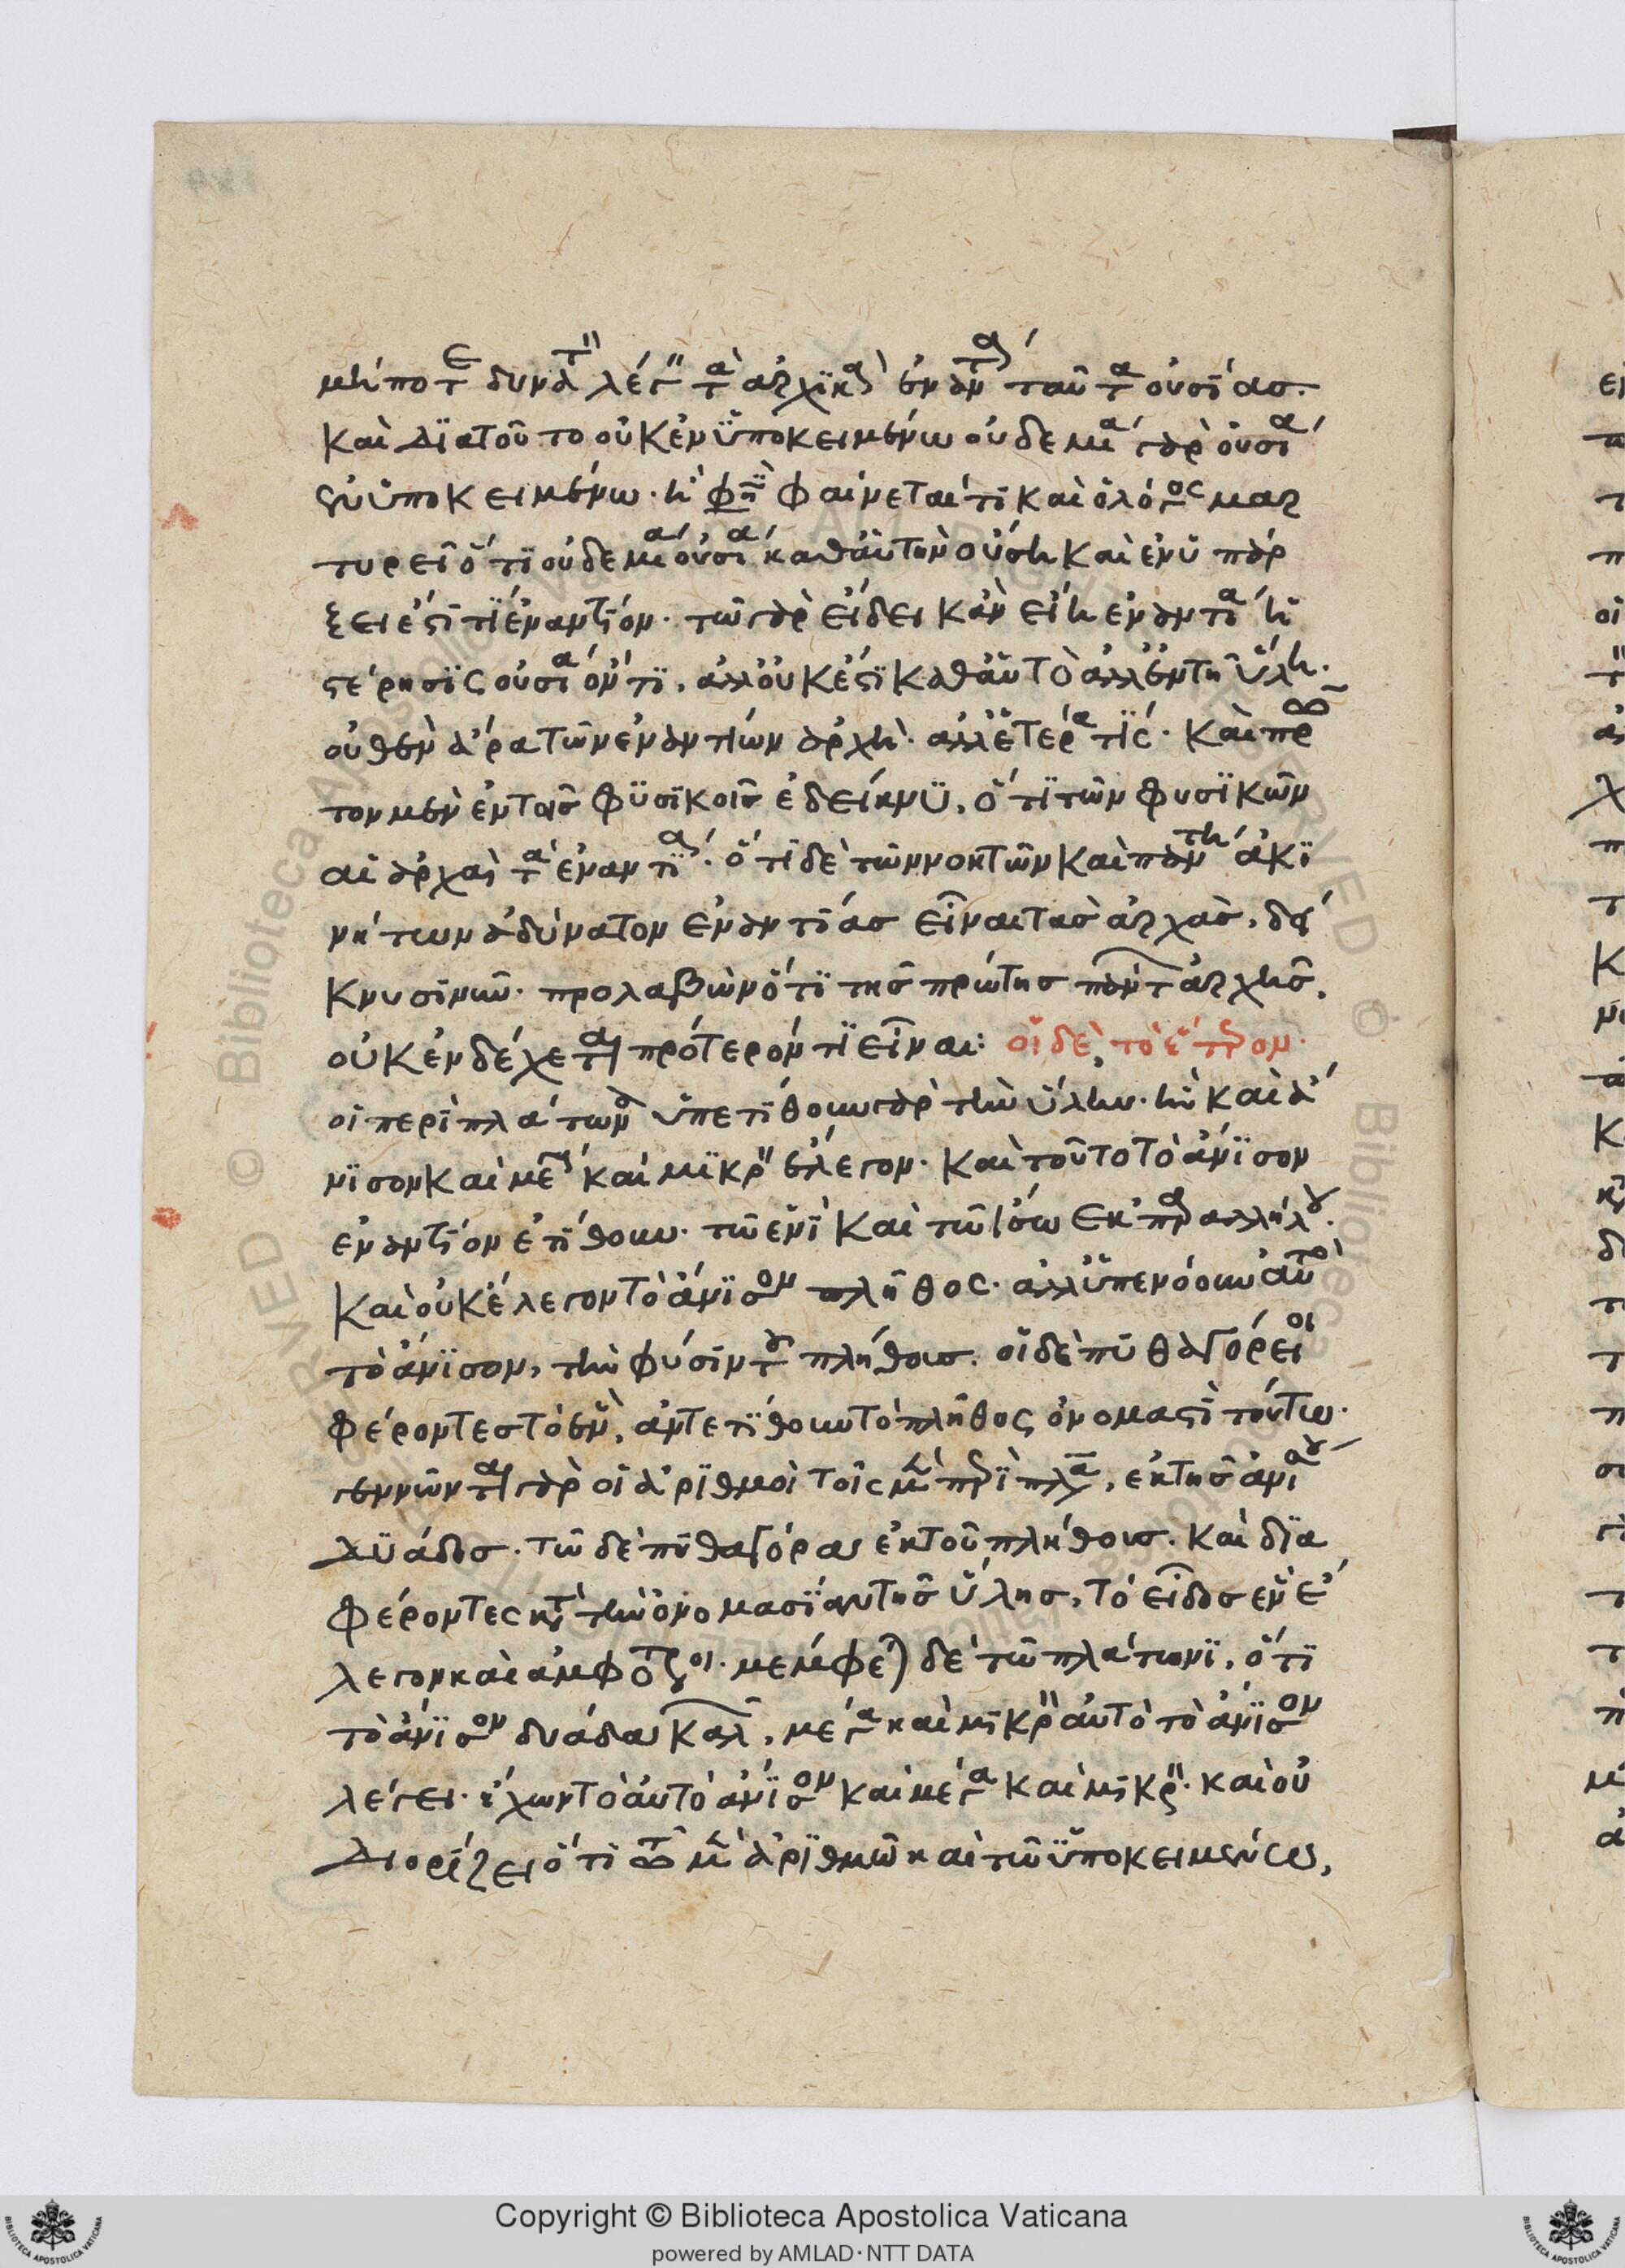 μήποτε δυνατὸν λέγειν τὰς ἀρχικὰς ἐναντία ταῦτα οὐσίας.
καὶ διὰ τοῦτο οὐκ ἐν ὑποκειμένω οὐδεμία γὰρ οὐσία
ἐν ὑποκειμένω. ἢ φησὶ φαίνεταί τι καὶ ὁ λόγος μαρ
τυρεῖ ὅτι οὐδεμιᾶ οὐσία καθ αὑτὴν οὔση καὶ ἐν ὑπάρ
ξει ἐστί τι ἐναντίον. τῶ γὰρ εἴδει κἂν εἴη ἐναντία ἡ
στέρησις οὐσία ὄντι, ἀλλ οὐκ ἔστι καθ αὑτὸ ἀλλ ἐν τῆ ὕλη.
οὐθὲν ἄρα τῶν ἐναντίων ἀρχὴ. ἀλλ ἑτέρα τίς. καὶ πρῶ
τον μὲν ἐν τοῖς φυσικοῖς ἐδείκνυ, ὅτι τῶν φυσικῶν
αἱ ἀρχαὶ τὰ ἐναντία. ὅτι δὲ τῶν νοητῶν καὶ πάντη ἀκι
νήτων ἀδύνατον ἐναντίας εἶναι τὰς ἀρχὰς, δεί
κνυσι νῦν. προλαβὼν ὅτι τῆς πρώτης πάντων ἀρχῆς,
οὐκ ἐνδέχεται πρότερόν τι εἶναι: οἱ δὲ, τὸ ἕτερον.
οἱ περὶ πλάτωνα ὑπετίθουν γὰρ τὴν ὕλην. ἣν καὶ ἄ
νισον καὶ μέγα καὶ μικρὸν ἔλεγον. καὶ τοῦτο τὸ ἄνισον
ἐναντίον ἐτίθουν. τῶ ἑνὶ καὶ τῶ ἴσω ἐκ παραλλήλου.
καὶ οὐκ ἔλεγον τὸ ἄνισον πλῆθος. ἀλλ ὑπενόουν αὐτὸ
τὸ ἄνισον, τὴν φύσιν τοῦ πλήθους. οἱ δὲ πυθαγόρειοι
φέροντες τὸ ἓν, ἀντετίθουν τὸ πλῆθος ὀνομαστὶ τούτω.
γεννῶνται γὰρ οἱ ἀριθμοὶ τοῖς μὲν περὶ πλάτωνα, ἐκ τῆς ἀνίσου
δυάδος. τῶ δὲ πυθαγόρα ἐκ τοῦ πλήθους. καὶ δια
φέροντες κατὰ τὴν ὀνομασίαν τῆς ὕλης, τὸ εἶδος ἓν ἔ
λεγον καὶ ἀμφότεροι. μέμφεται δὲ τῶ πλάτωνι, ὅτι
τὸ ἄνισον δυάδα καλεῖ, μέγα καὶ μικρὸν αὐτὸ τὸ ἄνισον
λέγει. ἔχων τὸ αὐτὸ ἄνισον καὶ μέγα καὶ μικρόν. καὶ οὐ
διορίζει ὅτι τῶ μὲν ἀριθμῶ καὶ τῶ ὑποκειμένω,